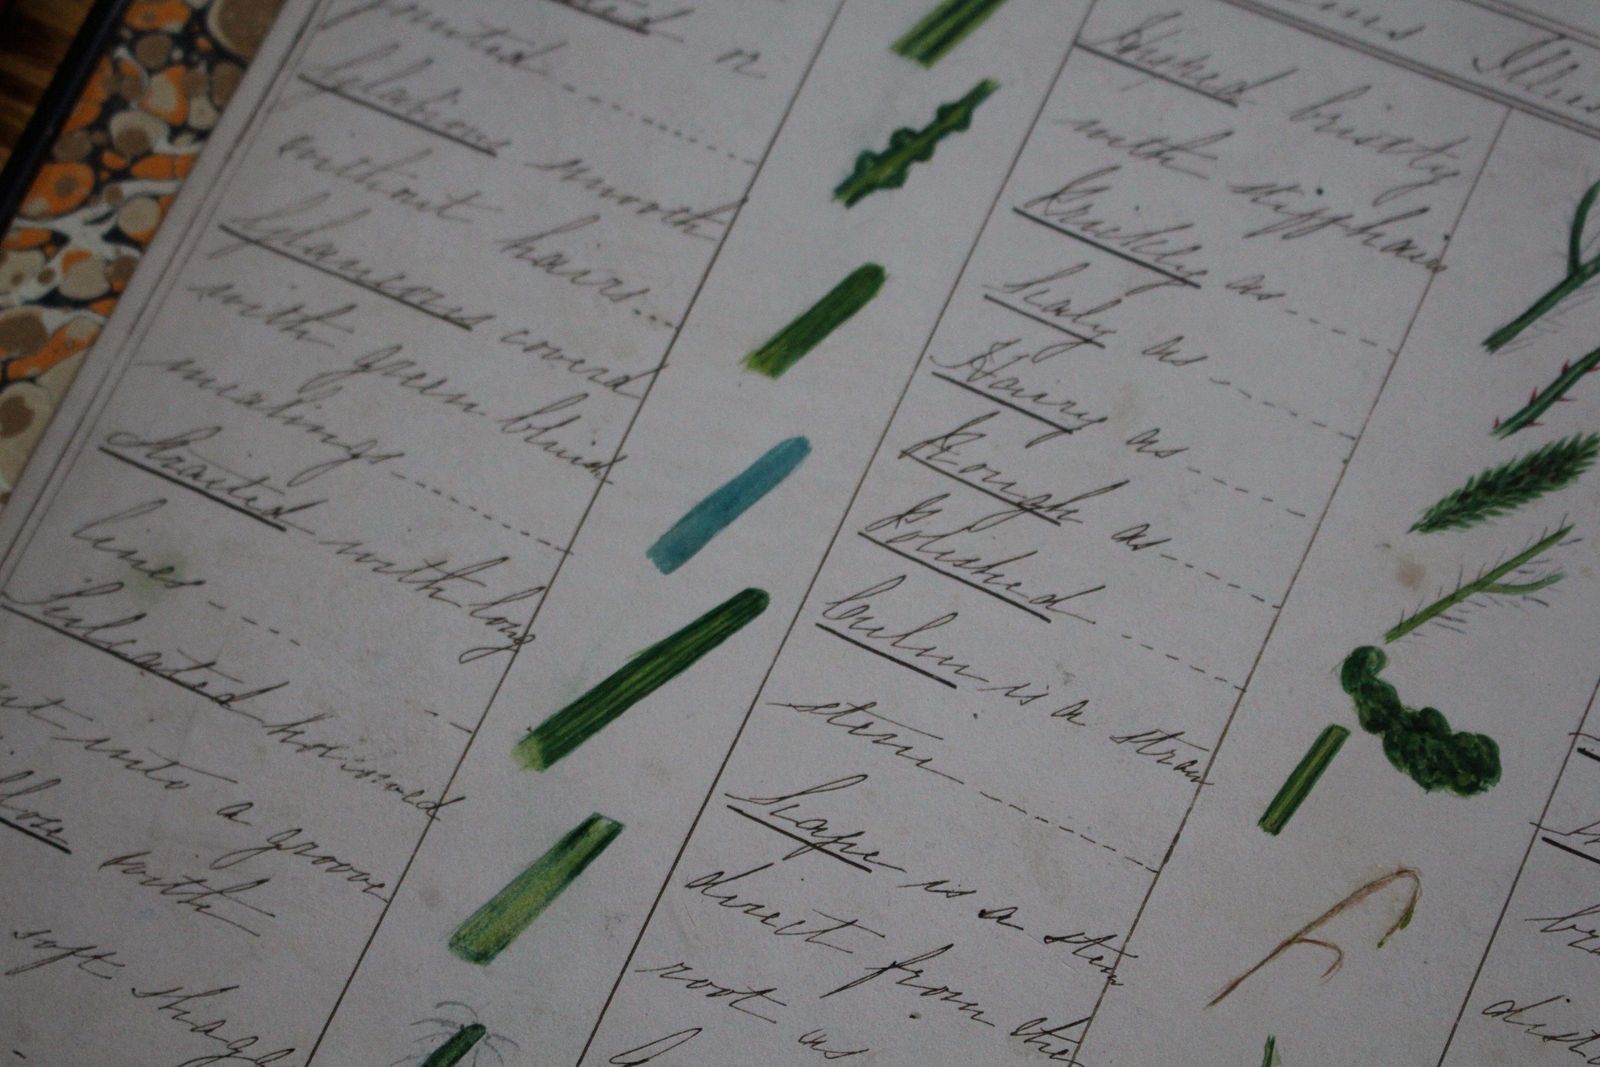 or
pointed
Glabrous smooth
without hairs
Glaucous coverd
with green blueish
mealings
Straeted with long
lines
Sulcated horizoned
into a groove
with
soft shagg
Illus
Hisped bristy
with stiff hairs
Prickly as
Scaly as
Hairy as
Rough as
Polished
Culm is a straw
stem
Scape is a stem
direct from the
root as